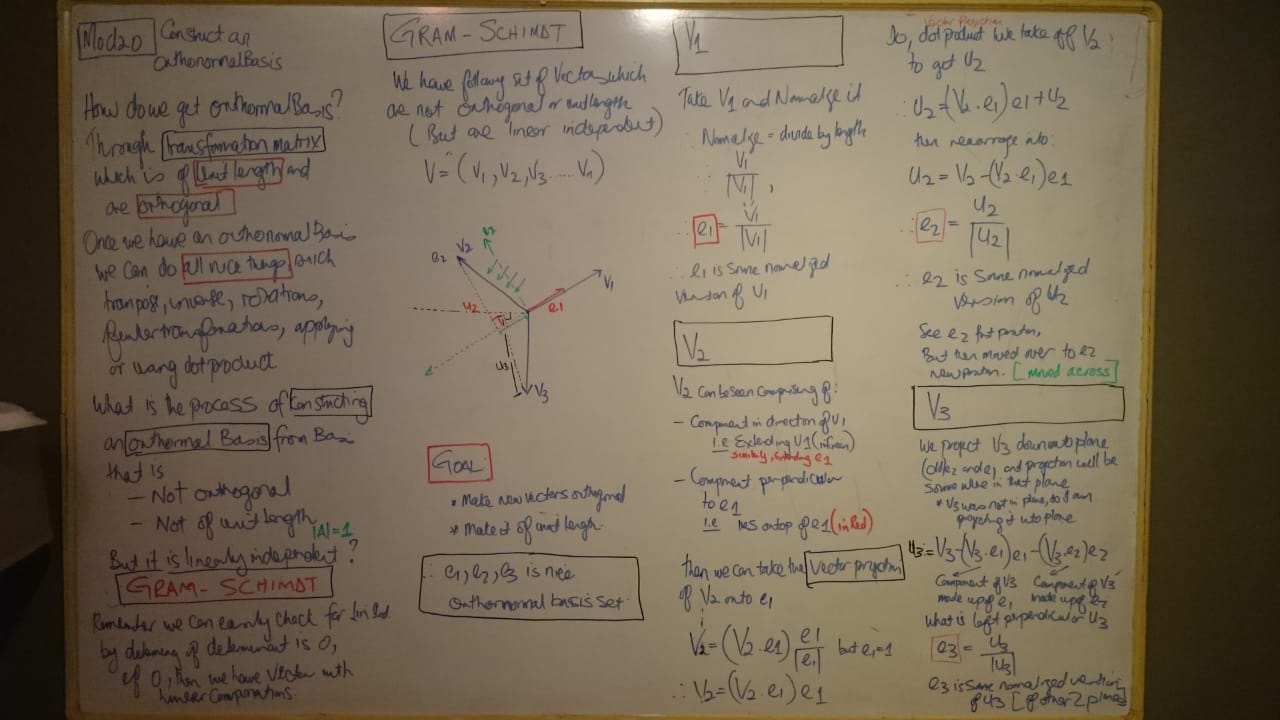 Mod20 Construct an
Orthonormal Basis
How do we get orthonormal Basis?
Through transformation matrix
which is of unit length and
are orthogonal
Once we have an orthonormal Basis
we can do all nice things, such
transpose, inverse, rotations,
transformations, applying
or using dot product
What is the process of Constructing
an orthonormal Basis from Basis
that is
- Not orthogonal
- Not of unit length |A|=1
But it is linearly independent?
GRAM-SCHIMDT
Remember we can easily check for lin Ind.
by defining if determinant is 0,
if 0, then we have vector with
linear Combinations.
GRAM-SCHIMDT
We have following set of Vectors which
are not orthogonal or unit length
(But are linear independent)
V = (V1, V2, V3 ..... Vn)
V2
e2
V1
e1
u2
u3
V3
GOAL:
* Make new vectors orthogonal
* Make it of unit length.
∴ e1, e2, e3 is nice
Orthonormal basis set.
V1
Take V1 and Normalize it
Normalize = divide by length
V1
|V1| ,
∴ e1 = V1
|V1|
∴ e1 is Some normalized
version of V1
V2
V2 can be seen comprising of:
- Component in direction of V1
i.e Extending V1 (in green)
similarly, extending e1
- Component perpendicular
to e1
i.e lies on top of e1 (in Red)
then we can take the Vector projection
of V2 onto e1
V2 = (V2 . e1) e1
|e1| but e1=1
∴ V2 = (V2 . e1) e1
Vector Projection
So, dot product we take off V2
to get U2
∴ U2 = (V2 . e1) e1 + U2
then rearrange into:
U2 = V2 - (V2 . e1) e1
∴ e2 = U2
|U2|
∴ e2 is Some normalized
Version of U2
See e2 first position,
But then moved over to e2
new position. [moved across]
V3
We project V3 down onto plane
(of e2 and e1 and projection will be
Some where in that plane
* V3 was not in plane, so I am
projecting it into plane
U3 = V3 - (V3 . e1) e1 - (V3 . e2) e2
Component of V3 made up of e1
Component of V3 made up of e2
What is left perpendicular U3
e3 = U3
|U3|
e3 is Some normalized version
of U3 [of other 2 planes]